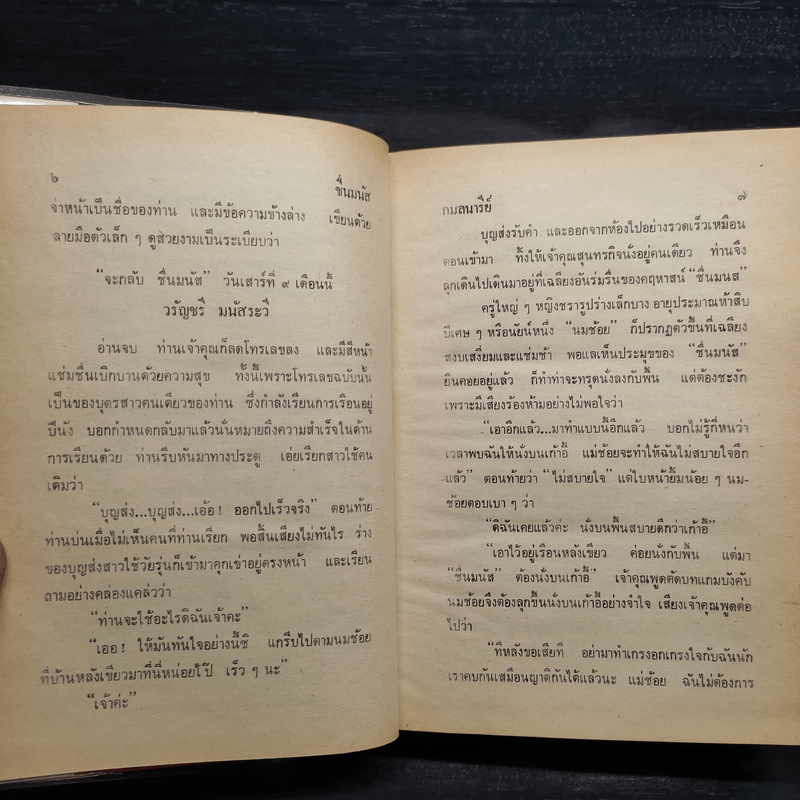 ๖
ชื่นมนัส
จ่าหน้าเป็นชื่อของท่าน และมีข้อความข้างล่าง เขียนด้วย
ลายมือตัวเล็ก ๆ ดูสวยงามเป็นระเบียบว่า
“จะกลับ ชื่นมนัส” วันเสาร์ที่ ๙ เดือนนี้
วรัญชรี มนัสระวี
อ่านจบ ท่านเจ้าคุณก็ลดโทรเลขลง และมีสีหน้า
แช่มชื่นเบิกบานด้วยความสุข ทั้งนี้เพราะโทรเลขฉบับนั้น
เป็นของบุตรสาวคนเดียวของท่าน ซึ่งกำลังเรียนการเรือนอยู่
ปีนัง บอกกำหนดกลับมาแล้วนั่นหมายถึงความสำเร็จในด้าน
การเรียนด้วย ท่านรีบหันมาทางประตู เอ่ยเรียกสาวใช้คน
เดิมว่า
“บุญส่ง...บุญส่ง...เอ้อ! ออกไปเร็วจริง” ตอนท้าย
ท่านบ่นเมื่อไม่เห็นคนที่ท่านเรียก พอสิ้นเสียงไม่ทันไร ร่าง
ของบุญส่งสาวใช้วัยรุ่นก็เข้ามาคุกเข่าอยู่ตรงหน้า และเรียน
ถามอย่างคล่องแคล่วว่า
“ท่านจะใช้อะไรดิฉันเจ้าคะ”
“เออ! ให้มันทันใจอย่างนี้ซิ แกรีบไปตามนมช้อย
ที่บ้านหลังเขียวมาที่นี่หน่อยไป๊ เร็ว ๆ นะ”
“เจ้าค่ะ”
กมลนารีย์
๗
บุญส่งรับคำ และออกจากห้องไปอย่างรวดเร็วเหมือน
ตอนเข้ามา ทิ้งให้เจ้าคุณสุนทรกิจนั่งอยู่คนเดียว ท่านจึง
ลุกเดินไปเดินมาอยู่ที่เฉลียงอันร่มรื่นของคฤหาสน์ “ชื่นมนัส”
ครู่ใหญ่ ๆ หญิงชรารูปร่างเล็กบาง อายุประมาณห้าสิบ
ปีเศษ ๆ หรือนัยน์หนึ่ง “นมช้อย” ก็ปรากฏตัวขึ้นที่เฉลียง
สงบเสงี่ยมและแช่มช้า พอแลเห็นประมุขของ “ชื่นมนัส”
ยืนคอยอยู่แล้ว ก็ทำท่าจะทรุดนั่งลงกับพื้น แต่ต้องชะงัก
เพราะมีเสียงร้องห้ามอย่างไม่พอใจว่า
“เอาอีกแล้ว...มาทำแบบนี้อีกแล้ว บอกไม่รู้กี่หนว่า
เวลาพบฉันให้นั่งบนเก้าอี้ แม่ช้อยจะทำให้ฉันไม่สบายใจอีก
แล้ว” ตอนท้ายว่า “ไม่สบายใจ” แต่ใบหน้ายิ้มน้อย ๆ นม-
ช้อยตอบเบา ๆ ว่า
“ดิฉันเคยแล้วค่ะ นั่งบนพื้นสบายดีกว่าเก้าอี้”
“เอาไว้อยู่เรือนหลังเขียว ค่อยนั่งกับพื้น แต่มา
“ชื่นมนัส” ต้องนั่งบนเก้าอี้” เจ้าคุณพูดตัดบทแกมบังคับ
นมช้อยจึงต้องลุกขึ้นนั่งบนเก้าอี้อย่างจำใจ เสียงเจ้าคุณพูดต่อ
ไปว่า
“ทีหลังขอเสียที อย่ามาทำเกรงอกเกรงใจกับฉันนัก
เราคบกันเสมือนญาติกันได้แล้วนะ แม่ช้อย ฉันไม่ต้องการ